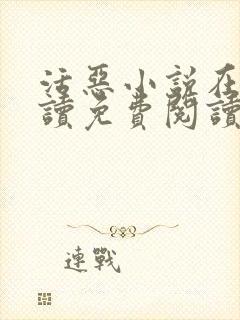 活惡小說在
讀免費閱讀
連戰